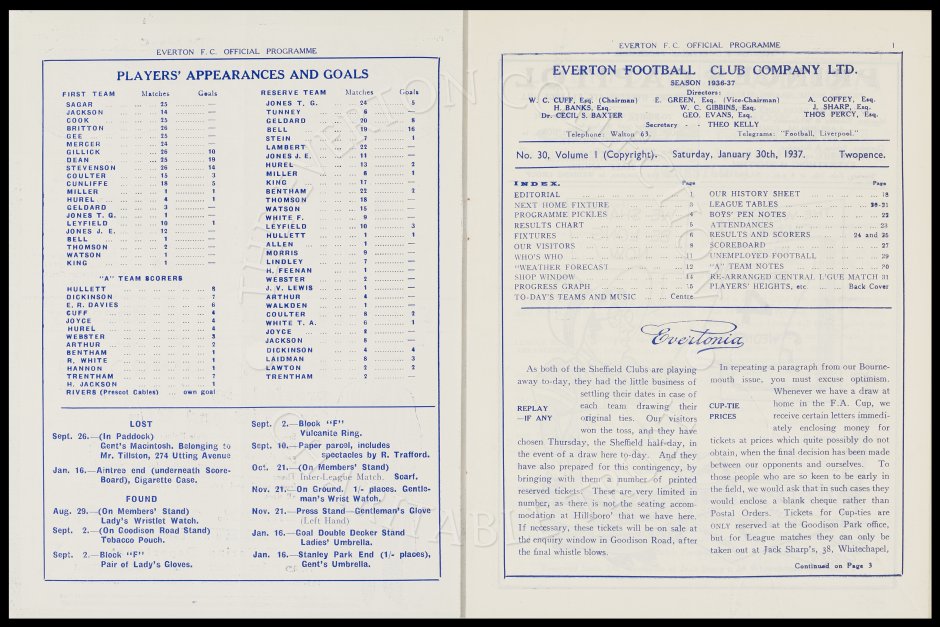 EVERTON F. C. OFFICIAL PROGRAMME
PLAYERS' APPEARANCES AND GOALS
FIRST TEAM Matches Goals
SAGAR ... ... 25 —
JACKSON ... ... 14 —
COOK ... ... 25 —
BRITTON ... ... 26 —
GEE ... ... 25 —
MERCER ... ... 24 —
GILLICK ... ... 26 10
DEAN ... ... 25 19
STEVENSON ... ... 26 14
COULTER ... ... 15 3
CUNLIFFE ... ... 18 5
MILLER ... ... 1 1
HUREL ... ... 4 1
GELDARD ... ... 3 —
JONES T. G. ... ... 1 —
LEYFIELD ... ... 10 1
JONES J. E. ... ... 12 —
BELL ... ... 1 —
THOMSON ... ... 2 —
WATSON ... ... 1 —
KING ... ... 1 —
"A" TEAM SCORERS
HULLETT ... ... 8
DICKINSON ... ... 7
E. R. DAVIES ... ... 6
CUFF ... ... 4
JOYCE ... ... 4
HUREL ... ... 4
WEBSTER ... ... 3
ARTHUR ... ... 2
BENTHAM ... ... 1
R. WHITE ... ... 1
HANNON ... ... 1
TRENTHAM ... ... 7
H. JACKSON ... ... 1
RIVERS (Prescot Cables) ... own goal
RESERVE TEAM Matches Goals
JONES T. G. ... ... 24 5
TUNNEY ... ... 6 —
GELDARD ... ... 20 8
BELL ... ... 19 16
STEIN ... ... 7 1
LAMBERT ... ... 22 —
JONES J. E. ... ... 11 —
HUREL ... ... 13 2
MILLER ... ... 6 1
KING ... ... 17 —
BENTHAM ... ... 22 2
THOMSON ... ... 18 —
WATSON ... ... 15 —
WHITE F. ... ... 9 —
LEYFIELD ... ... 10 3
HULLETT ... ... 1 1
ALLEN ... ... 1 —
MORRIS ... ... 9 —
LINDLEY ... ... 7 —
H. FEENAN ... ... 1 —
WEBSTER ... ... 2 —
J. V. LEWIS ... ... 1 —
ARTHUR ... ... 4 —
WALKDEN ... ... 1 —
COULTER ... ... 8 2
WHITE T. A. ... ... 6 1
JOYCE ... ... 2 —
JACKSON ... ... 5 —
DICKINSON ... ... 4 4
LAIDMAN ... ... 8 3
LAWTON ... ... 2 2
TRENTHAM ... ... 2 —
LOST
Sept. 26.—(In Paddock)
Gent's Macintosh. Belonging to
Mr. Tillston, 274 Utting Avenue
Jan. 16.—Aintree end (underneath Score-
Board), Cigarette Case.
FOUND
Aug. 29.—(On Members' Stand)
Lady's Wristlet Watch.
Sept. 2.—(On Goodison Road Stand)
Tobacco Pouch.
Sept. 2.—Block "F"
Pair of Lady's Gloves.
Sept. 2.—Block "F"
Vulcanite Ring.
Sept. 10.—Paper parcel, includes
spectacles by R. Trafford.
Oct. 21.—(On Members' Stand)
Inter-League Match. Scarf.
Nov. 21.—On Ground. 1/- places. Gentle-
man's Wrist Watch.
Nov. 21.—Press Stand—Gentleman's Glove
(Left Hand)
Jan. 16.—Goal Double Decker Stand
Ladies' Umbrella.
Jan. 16.—Stanley Park End (1/- places),
Gent's Umbrella.
EVERTON F. C. OFFICIAL PROGRAMME 1
EVERTON FOOTBALL CLUB COMPANY LTD.
SEASON 1936-37
Directors:
W. C. CUFF, Esq. (Chairman) E. GREEN, Esq. (Vice-Chairman) A. COFFEY, Esq.
H. BANKS, Esq. W. C. GIBBINS, Esq. J. SHARP, Esq.
Dr. CECIL S. BAXTER GEO. EVANS, Esq. THOS PERCY, Esq.
Secretary - - THEO KELLY
Telephone: Walton 63. Telegrams: "Football, Liverpool."
No. 30, Volume 1 (Copyright). Saturday, January 30th, 1937. Twopence.
INDEX. Page
EDITORIAL ... ... 1
NEXT HOME FIXTURE ... ... 3
PROGRAMME PICKLES ... ... 4
RESULTS CHART ... ... 5
FIXTURES ... ... 6
OUR VISITORS ... ... 8
WHO'S WHO ... ... 11
"WEATHER FORECAST ... ... 12
SHOP WINDOW ... ... 14
PROGRESS GRAPH ... ... 15
TO-DAY'S TEAMS AND MUSIC ... Centre
Page
OUR HISTORY SHEET ... ... 18
LEAGUE TABLES ... ... 20-21
BOYS' PEN NOTES ... ... 22
ATTENDANCES ... ... 23
RESULTS AND SCORERS ... 24 and 25
SCOREBOARD ... ... 27
UNEMPLOYED FOOTBALL ... ... 29
"A" TEAM NOTES ... ... 30
RE-ARRANGED CENTRAL L'GUE MATCH 31
PLAYERS' HEIGHTS, etc ... Back Cover
Evertonia
As both of the Sheffield Clubs are playing
away to-day, they had the little business of
settling their dates in case of
REPLAY each team drawing their
—IF ANY original ties. Our visitors
won the toss, and they have
chosen Thursday, the Sheffield half-day, in
the event of a draw here to-day. And they
have also prepared for this contingency, by
bringing with them a number of printed
reserved tickets. These are very limited in
number, as there is not the seating accom-
modation at Hillsboro' that we have here.
If necessary, these tickets will be on sale at
the enquiry window in Goodison Road, after
the final whistle blows.
In repeating a paragraph from our Bourne-
mouth issue, you must excuse optimism.
Whenever we have a draw at
CUP-TIE home in the F.A. Cup, we
PRICES receive certain letters immedi-
ately enclosing money for
tickets at prices which quite possibly do not
obtain, when the final decision has been made
between our opponents and ourselves. To
those people who are so keen to be early in
the field, we would ask that in such cases they
would enclose a blank cheque rather than
Postal Orders. Tickets for Cup-ties are
ONLY reserved at the Goodison Park office,
but for League matches they can only be
taken out at Jack Sharp's, 38, Whitechapel,
Continued on Page 3